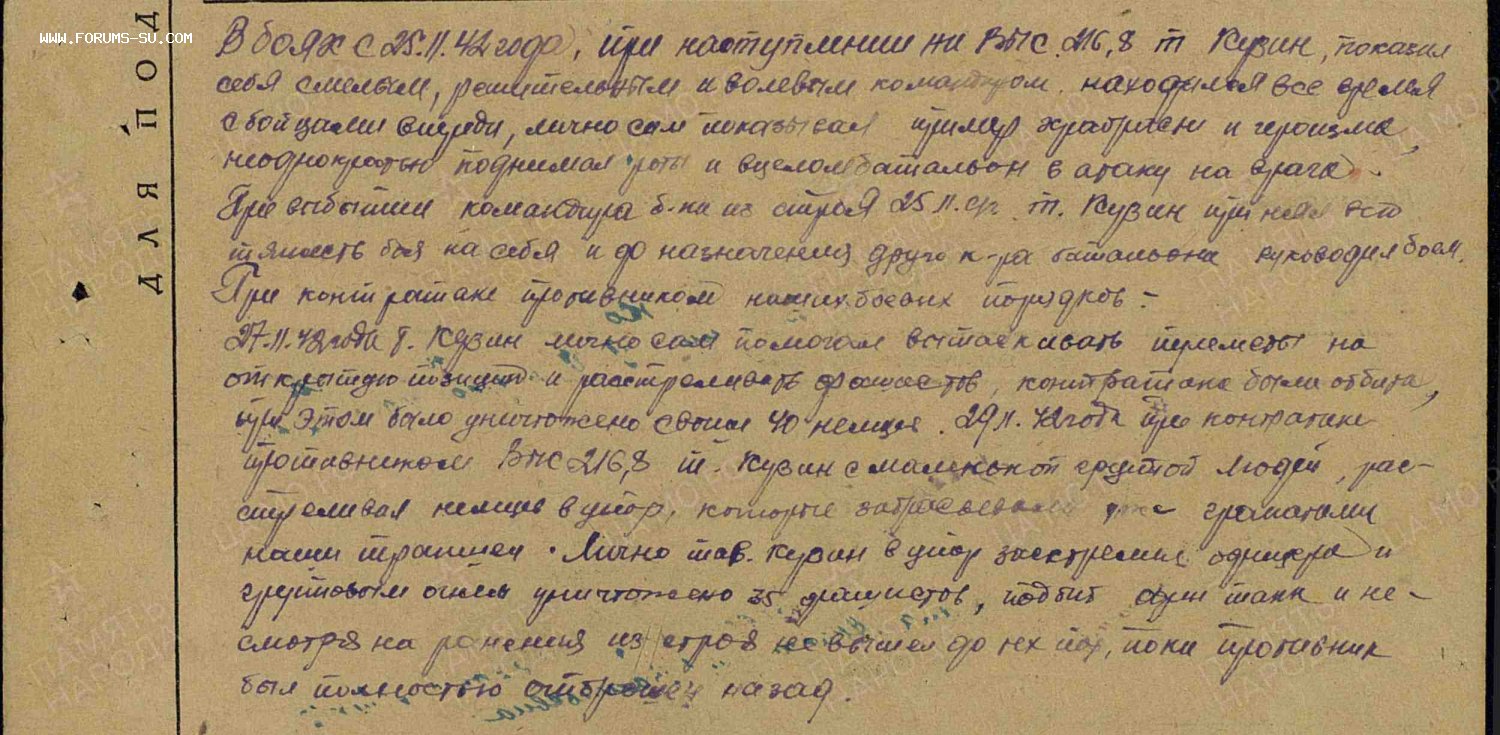 WWW.FORUMS-SU.COM
ДЛЯ ПОД
В боях с 25.11.42 года, при наступлении на Выс. 216,8 т Кузин, показал
себя смелым, решительным и волевым командиром. находился все время
с бойцами впереди, лично сам показывая пример храбрости и героизма,
неоднократно поднимал роты и вцелом батальон в атаку на врага.
При выбытии командира б-на из строя 25.11. т. Кузин принял всю
тяжесть боя на себя и до назначения друго к-ра батальона руководил боем.
При контратаке противником наших боевых порядков -
27.11.42 года т. Кузин лично сам помогал вытаскивать пулеметы на
открытую позицию и расстреливать фашистов, контратака была отбита,
при этом было уничтожено свыше 40 немцев. 29.11.42 года при контратаке
противником Выс 216,8 т. Кузин с маленькой группой людей, рас-
стреливал немцев в упор, которые забрасывали уже гранатами
наши траншеи. Лично тов. Кузин в упор застрелил офицера и
групповым огнем уничтожено 35 фашистов, подбит один танк и не-
смотря на ранения из строя не вышел до тех пор, пока противник
был полностью отброшен назад.